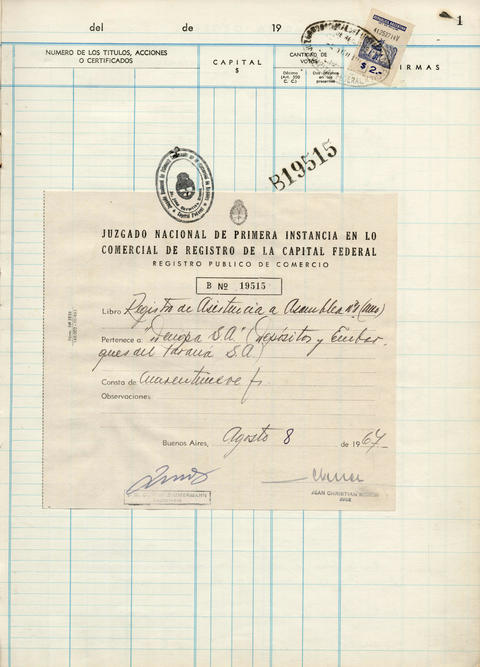 1
del de 19
NUMERO DE LOS TITULOS, ACCIONES
O CERTIFICADOS
CAPITAL
$
CANTIDAD DE
VOTOS
Décimo
(Art. 350
C. C.)
IRMAS
$ 2.-
B19515
JUZGADO NACIONAL DE PRIMERA INSTANCIA EN LO
COMERCIAL DE REGISTRO DE LA CAPITAL FEDERAL
REGISTRO PUBLICO DE COMERCIO
B Nº 19515
Libro Registro de Asistencia a Asamblea nº1 (uno)
Pertenece a: "Demopa S.A" (Depósitos y Embar-
ques del Paraná S.A)
Consta de Cuarentinueve fs.
Observaciones:
Buenos Aires, Agosto 8 de 1967
JEAN CHRISTIAN
JUEZ